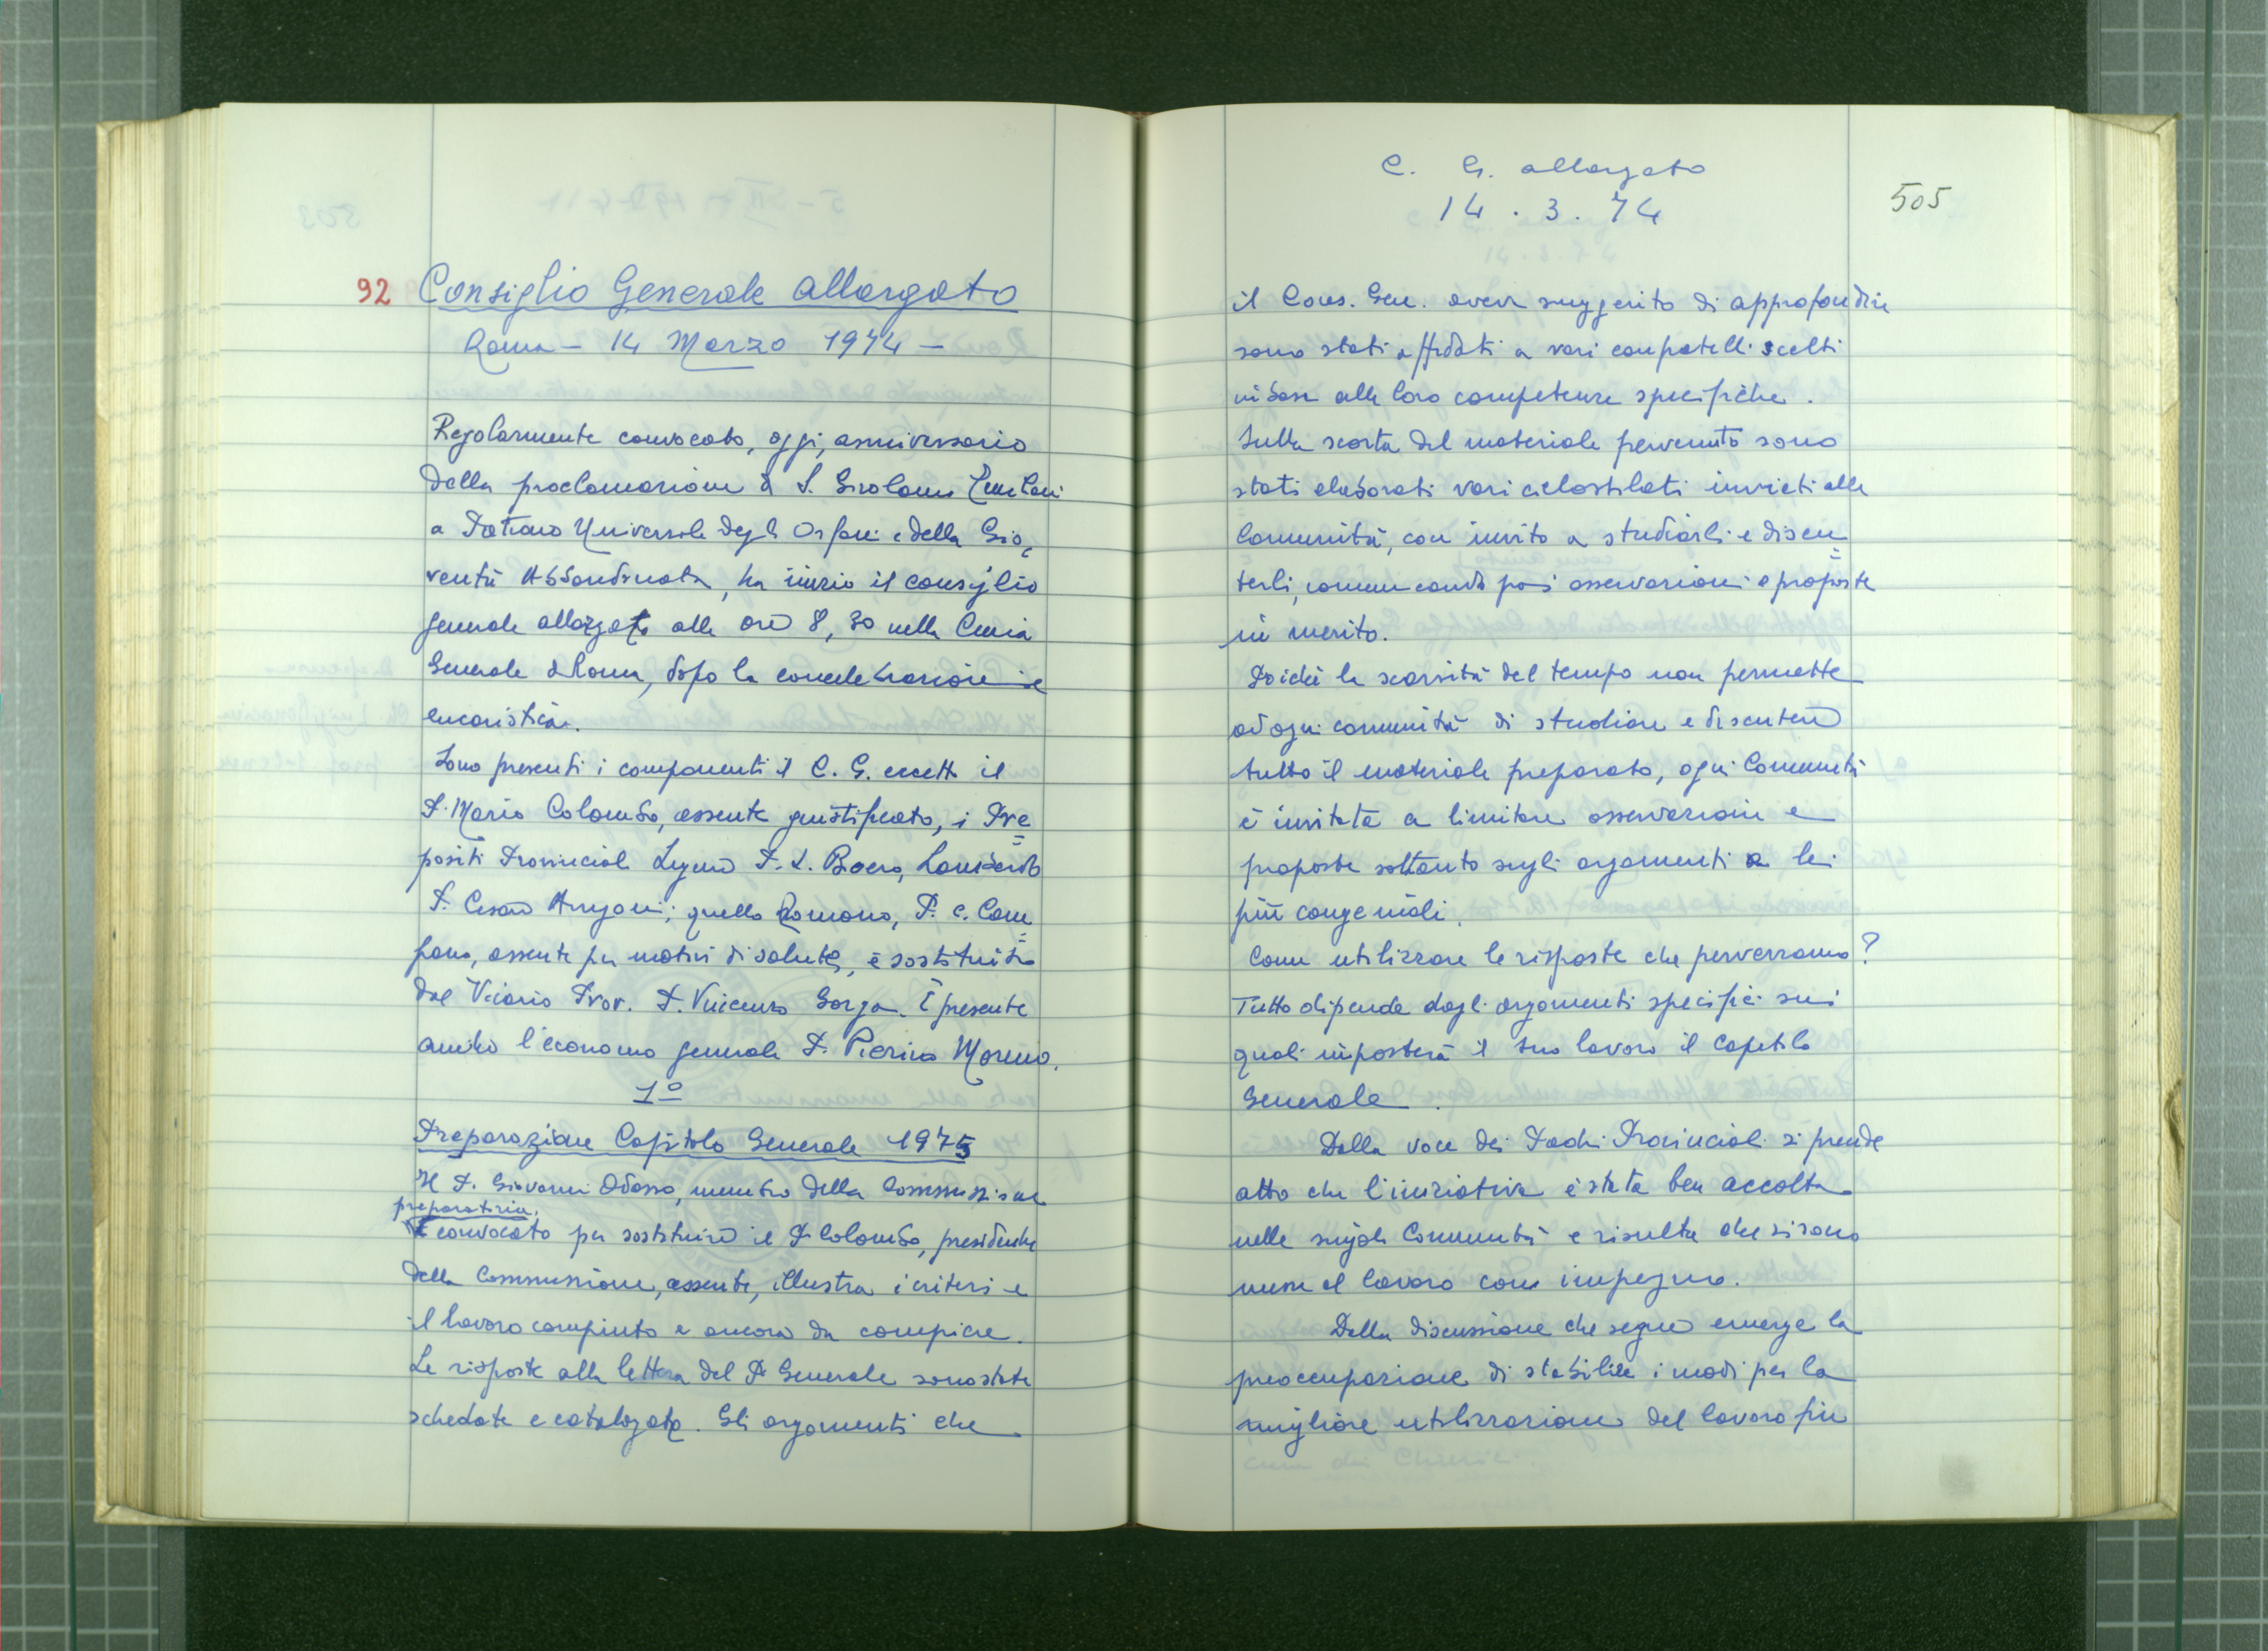 92 Consiglio Generale allargato
Roma - 14 Marzo 1974 -
Regolarmente convocato, oggi, anniversario
della proclamazione di S. Girolamo Emiliani
a Patrono Universale degli Orfani e della Gio=
ventù Abbandonata, ha inizio il consiglio
generale allargato alle ore 8,30 nella Curia
Generale di Roma, dopo la concelebrazione
eucaristica.
Sono presenti i componenti il C. G. eccetto il
P. Mario Colombo, assente giustificato, i Pre=
positi Provinciali Ligure P. L. Boero, Lombardo
P. Cesare Arrigoni; quello Romano, P. C. Cam=
pana, assente per motivi di salute, è sostituito
dal Vicario Prov. P. Vincenzo Gorga. È presente
anche l'economo generale P. Pierino Moreno.
1º
Preparazione Capitolo Generale 1975
Il P. Giovanni Odasso, membro della Commissione
preparatoria,
convocato per sostituire il P. Colombo, presidente
della Commissione, assente, illustra i criteri e
il lavoro compiuto e ancora da compiere.
Le risposte alla lettera del P. Generale sono state
schedate e catalogate. Gli argomenti che
C. G. allargato
14 . 3 . 74
505
il Cons. Gen. aveva suggerito di approfondire
sono stati affidati a vari confratelli scelti
in base alle loro competenze specifiche.
Sulla scorta del materiale pervenuto sono
stati elaborati vari ciclostilati inviati alle
Comunità, con invito a studiarli e discu=
terli, comunicando poi osservazioni e proposte
in merito.
Poiché la scarsità del tempo non permette
ad ogni comunità di studiare e discutere
tutto il materiale preparato, ogni Comunità
è invitata a limitare osservazioni e
proposte soltanto sugli argomenti a lei
più congeniali.
Come utilizzare le risposte che perverranno?
Tutto dipende dagli argomenti specifici sui
quali imposterà il suo lavoro il Capitolo
Generale.
Dalla voce dei Padri Provinciali si prende
atto che l'iniziativa è stata ben accolta
nelle singole Comunità e risulta che si sono
messe al lavoro con impegno.
Dalla discussione che segue emerge la
preoccupazione di stabilire i modi per la
migliore utilizzazione del lavoro fin